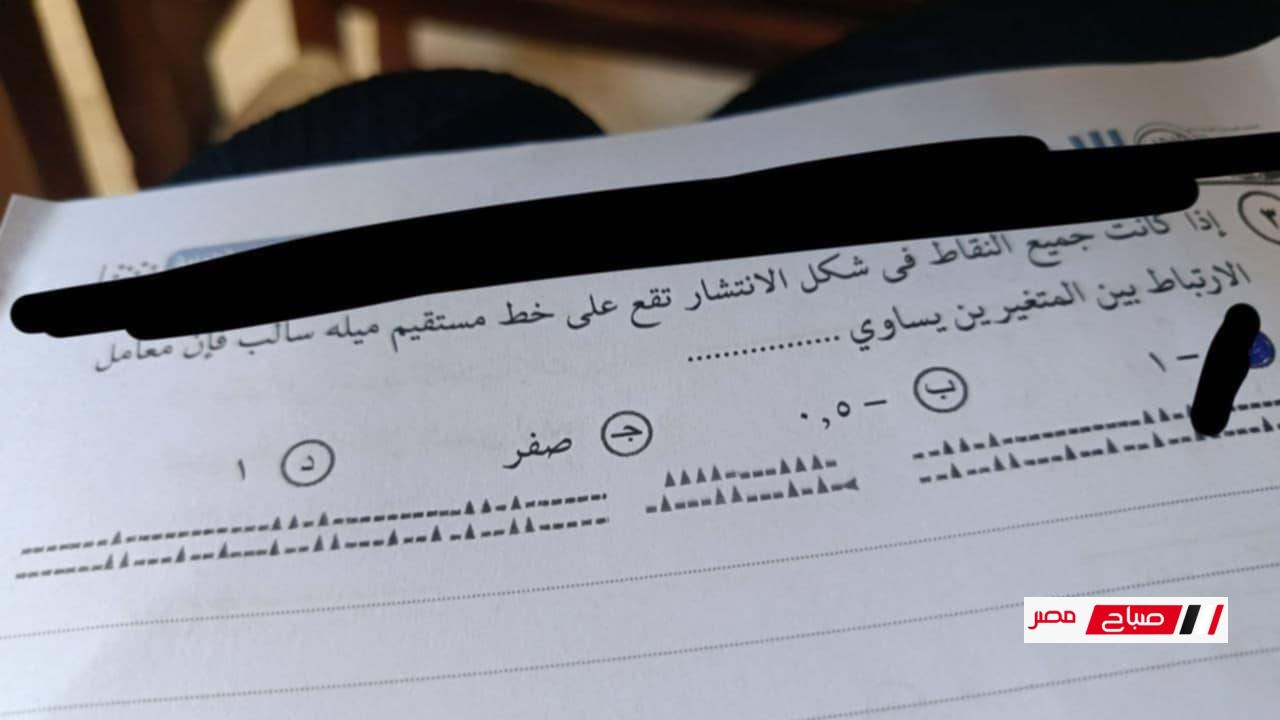 ٣ إذا كانت جميع النقاط فى شكل الانتشار تقع على خط مستقيم ميله سالب فإن معامل
الارتباط بين المتغيرين يساوي .................
− ١
ب − ٠,٥
جـ صفر
د ١
صباح مصر